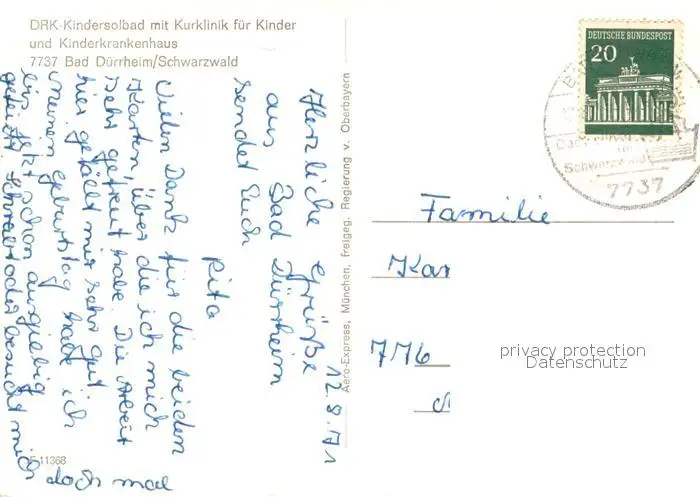 DRK-Kindersolbad mit Kurklinik für Kinder
und Kinderkrankenhaus
7737 Bad Dürrheim/Schwarzwald
Herzliche Grüße
aus Bad Dürrheim
sendet Euch
Rita
12.8.71
Vielen Dank für die beiden
Karten, über die ich mich
sehr gefreut habe. Die Arbeit
hier gefällt mir sehr gut
meinen Geburtstag habe ich
bis jetzt schon ausgiebig
gefeiert schreibt oder besucht mich
doch mal
Aero-Express, München, freigeg. Regierung v. Oberbayern
11368
DEUTSCHE BUNDESPOST
20
Schwarzwald
7737
Familie
Kar
7716
privacy protection
Datenschutz